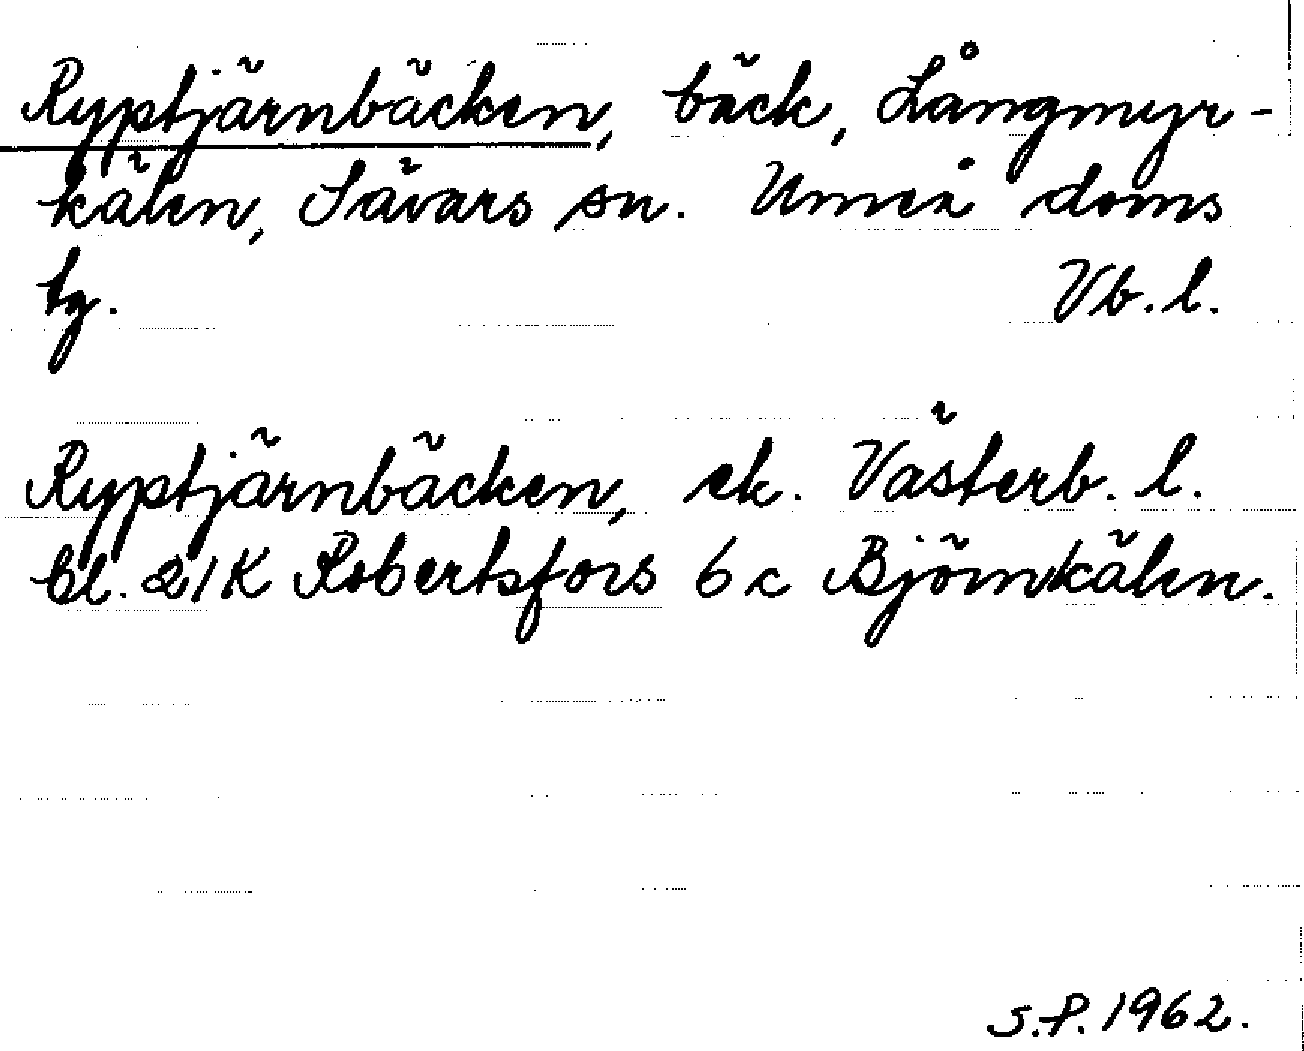 Ryptjärnbäcken, bäck, Långmyr-
kälen, Sävars sn. Umeå doms
tg. Vb. l.
Ryptjärnbäcken, ek. Västerb. l.
bl. 21K Robertsfors 6 c Björnkälen.
S.P. 1962.